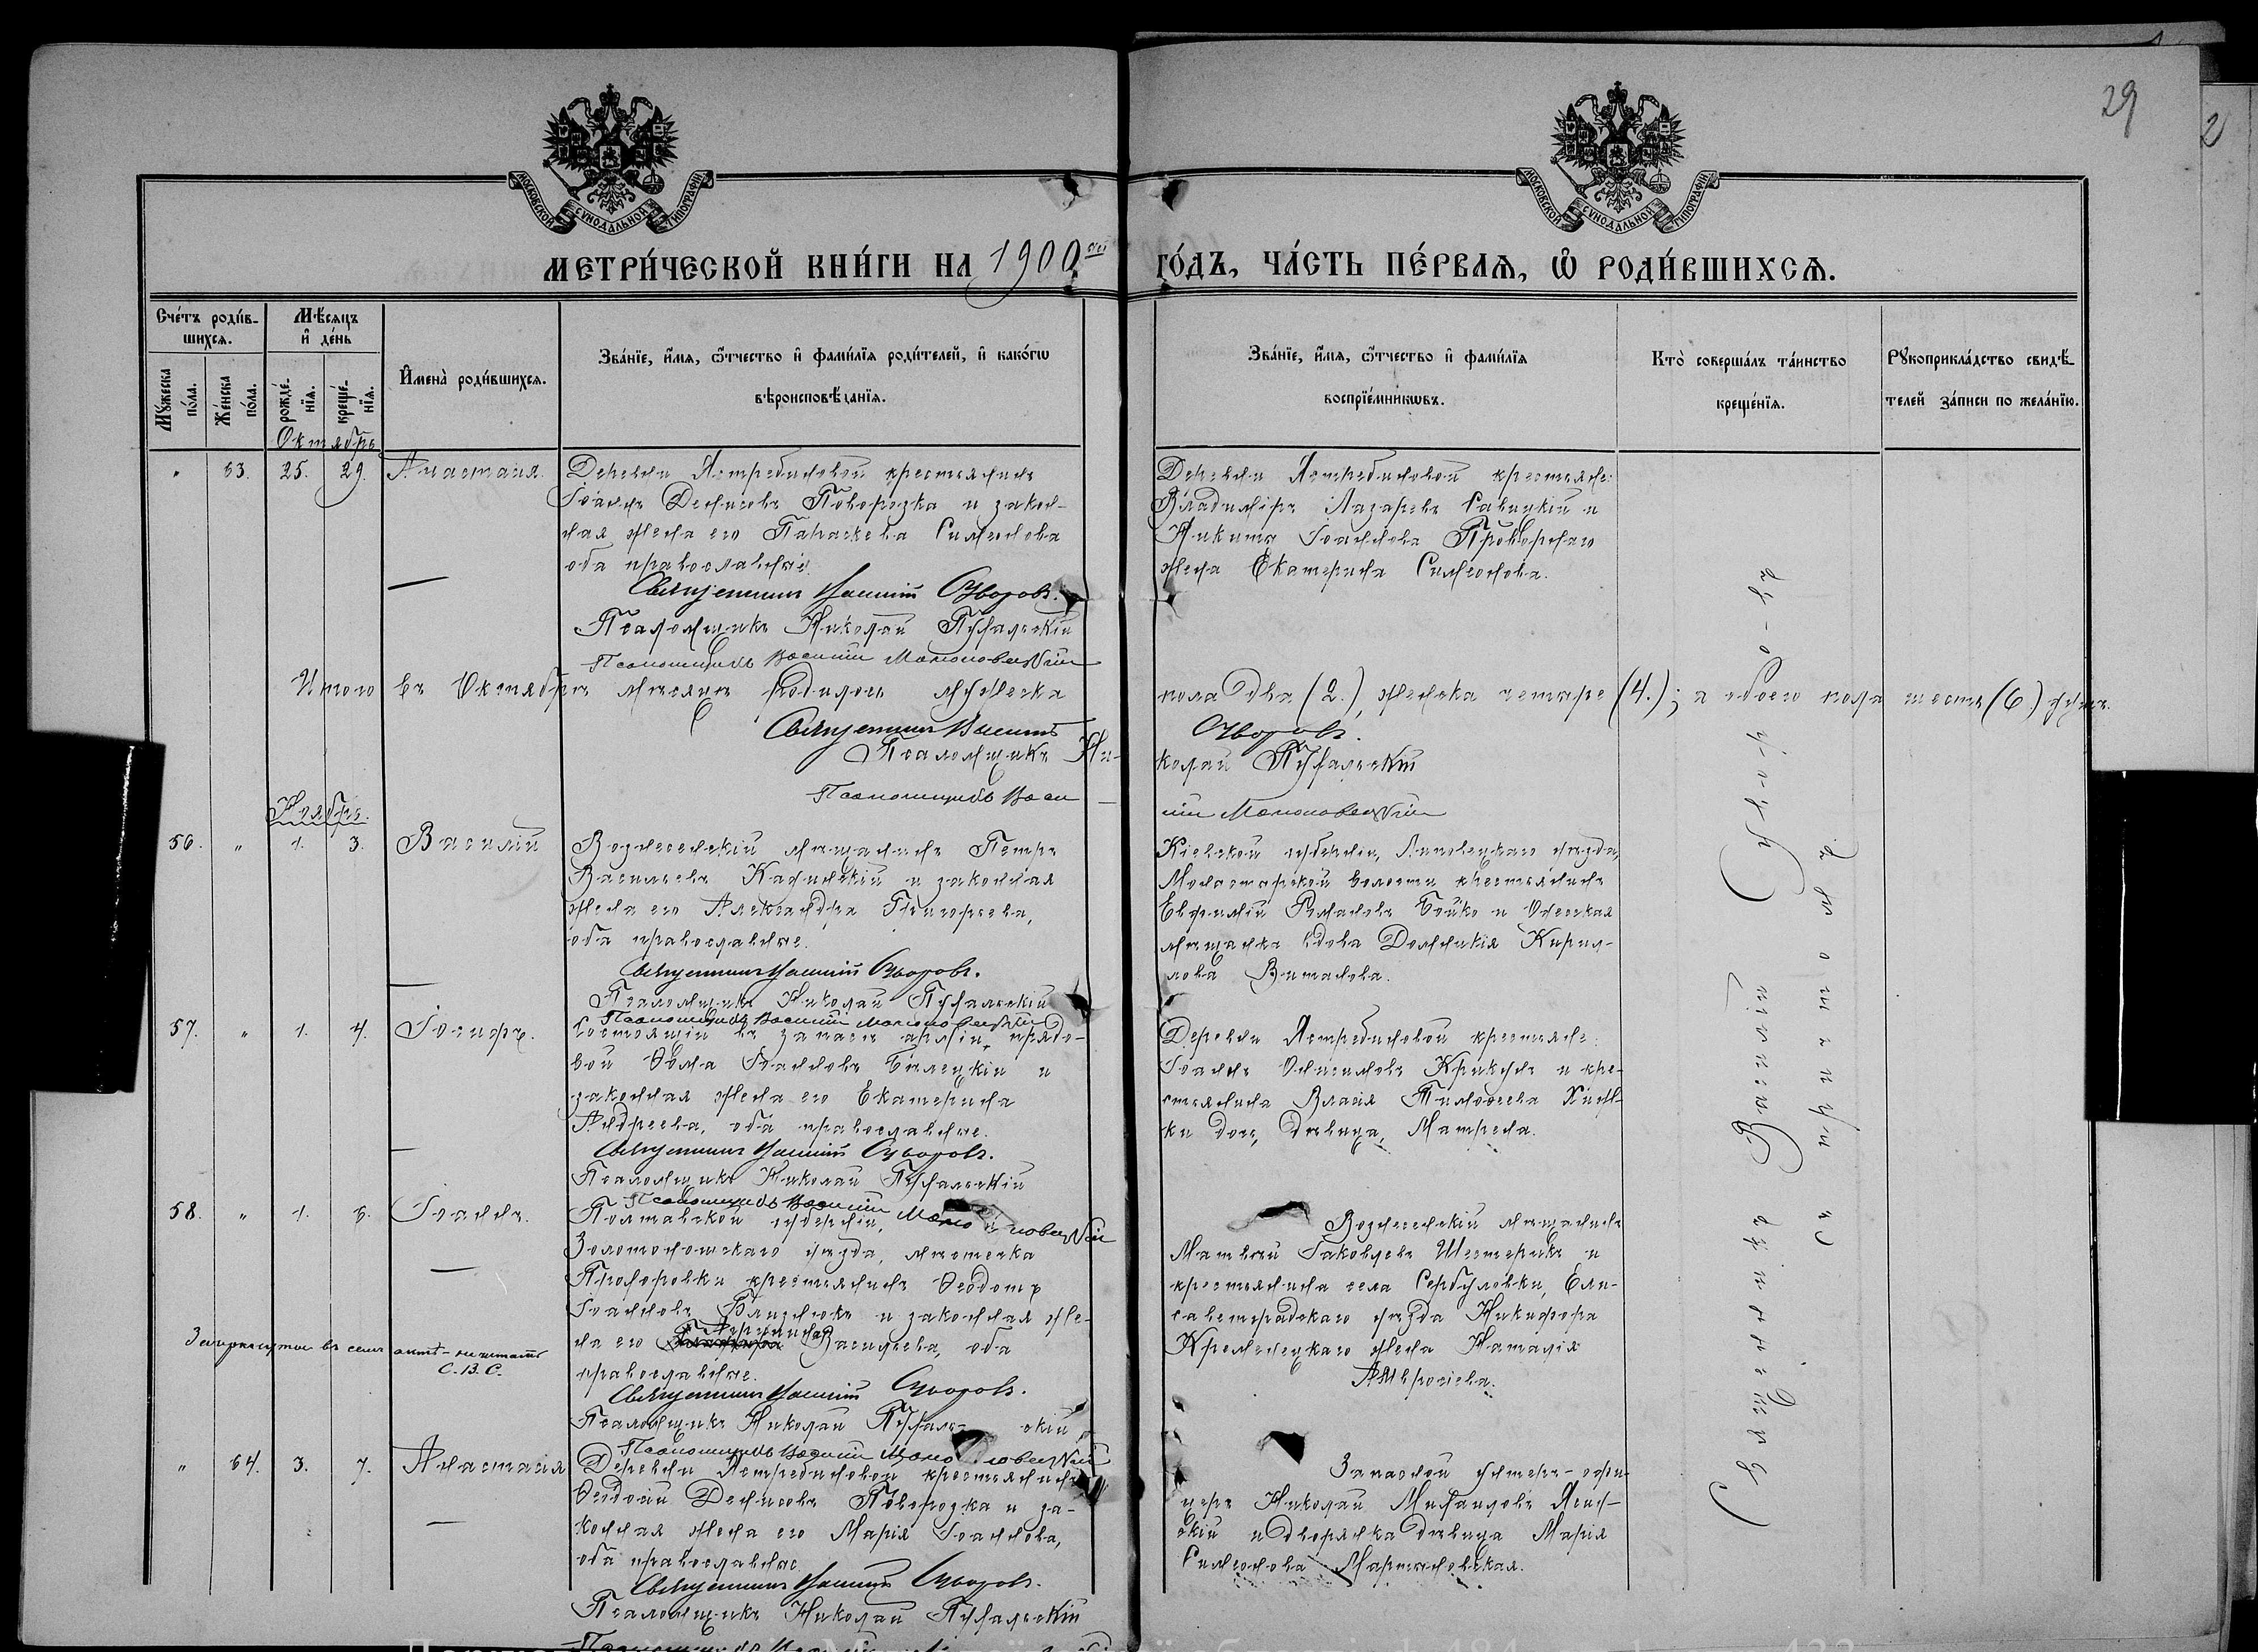 29
2
МОСКОВСКОЙ СѴНОДАЛЬНОЙ ТИПОГРАФІИ
МОСКОВСКОЙ СѴНОДАЛЬНОЙ ТИПОГРАФІИ
МЕТРИ́ЧЕСКОЙ КНИ́ГИ НА 1900 ГО́ДЪ, ЧА́СТЬ ПЕ́РВАѦ, Ѽ РОДИ́ВШИХСѦ.
Сче́тъ роди́в-
шихсѧ.
Мѣ́сѧцъ
и҆ де́нь
Мꙋ́жеска
по́ла.
Же́нска
по́ла.
рожде́-
нїѧ.
креще́-
нїѧ.
И҆мена̀ роди́вшихсѧ.
Зва́нїе, и҆́мѧ, ѻ҆́тчество и҆ фами́лїѧ роди́телей, и҆ како́гѡ
вѣроисповѣ́данїѧ.
Зва́нїе, и҆́мѧ, ѻ҆́тчество и҆ фами́лїѧ
воспрїе́мникѡвъ.
Кто̀ соверша́лъ та́инство
креще́нїѧ.
Рꙋкоприкла́дство свидѣ́-
телей за́писи по жела́нїю.
Октябрь
" 63. 25. 29. Анастасія.
Деревни Ястребиновой крестьянинъ
Іоаннъ Денисовъ Поворозка и закон-
ная жена его Параскева Симеонова
оба православные.
Священникъ Василій Суворовъ.
Псаломщикъ Николай Пухальскій
Псаломщикъ Василій
Деревни Ястребиновой крестьяне:
Владиміръ Лазаревъ Савицкій и
Никиты Іоаннова Проворнаго
жена Екатерина Симеонова.
Итого въ Октябрѣ мѣсяцѣ родилось мужеска пола два (2.), женска четыре (4.); а обоего пола шесть (6.) душъ.
Священникъ Василій Суворовъ.
Псаломщикъ Николай Пухальскій
Псаломщикъ Василій
Ноябрь.
56. " 1. 3. Василій
Вознесенскій мѣщанинъ Петръ
Васильевъ Калинскій и законная
жена его Александра Григорьева,
оба православные.
Священникъ Василій Суворовъ.
Псаломщикъ Николай Пухальскій
Псаломщикъ Василій
Кіевской губерніи, Липовецкаго уѣзда,
Монастырской волости крестьянинъ
Евфимій Романовъ Бойко и Одесская
мѣщанка вдова Домникія Кирил-
лова Витанова.
57. " 1. 4. Іосифъ.
Состоящій въ запасѣ арміи, рядо-
вой Ѳома Іоанновъ Бѣлецкій и
законная жена его Екатерина
Андреева, оба православные.
Священникъ Василій Суворовъ.
Псаломщикъ Николай Пухальскій
Псаломщикъ Василій
Деревни Ястребиновой крестьяне:
Іоаннъ Онисимовъ Крикунъ и кре-
стьянина Власія Тимоѳеева
ки дочь, дѣвица, Матрена.
58. " 1. 6. Іоаннъ.
Полтавской губерніи,
Золотоношскаго уѣзда, мѣстечка
Прохоровки крестьянинъ Ѳеодотъ
Іоанновъ Близнюкъ и законная же-
на его Васильева, оба
православные.
Священникъ Василій Суворовъ.
Псаломщикъ Николай Пухальскій
Псаломщикъ Василій
Зачеркнутое въ семъ актѣ - не читать
С. В. С.
Вознесенскій мѣщанинъ
Матвѣй Іаковлевъ Шестерикъ и
крестьянина села Сербуловки, Ели-
саветградскаго уѣзда Никифора
Кременецкаго жена Наталія
Амвросіева.
" 64. 3. 7. Анастасія
Деревни Ястребиновой крестьянинъ
Ѳеодосій Денисовъ Поворозка и за-
конная жена его Марія Іоаннова,
оба православные.
Священникъ Василій Суворовъ.
Псаломщикъ Николай Пухальскій
Запасной унтеръ-офи-
церъ Николай Михаиловъ Ясин-
скій и дворянка дѣвица Марія
Симеонова Мартыновская.
Священникъ Василій Суворовъ
съ причтомъ.